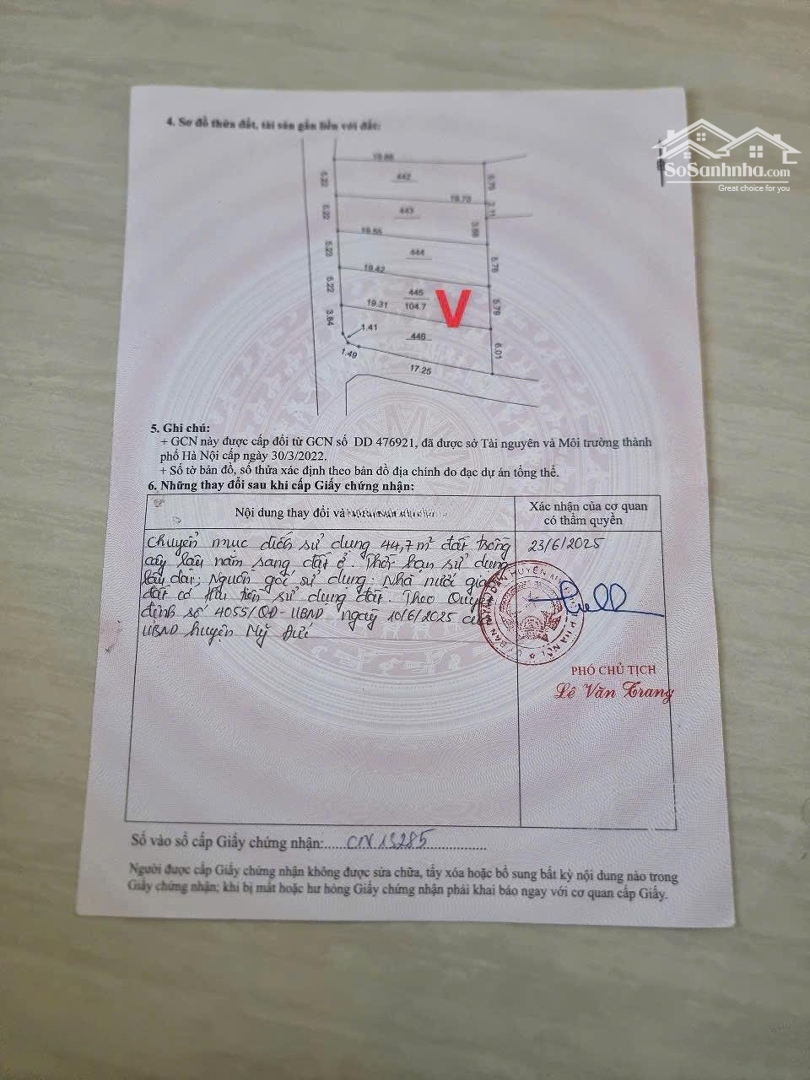 4. Sơ đồ thửa đất, tài sản gắn liền với đất:
SoSanhnha.com
Great choice for you
19.88
5.22
442
5.75
19.70
2.11
5.22
443
3.69
19.55
5.23
444
5.78
19.42
5.22
445
104.7
V
5.79
19.31
3.84
1.41
446
6.01
1.49
17.25
5. Ghi chú:
+ GCN này được cấp đổi từ GCN số DD 476921, đã được sở Tài nguyên và Môi trường thành
phố Hà Nội cấp ngày 30/3/2022.
+ Số tờ bản đồ, số thửa xác định theo bản đồ địa chính đo đạc dự án tổng thể.
6. Những thay đổi sau khi cấp Giấy chứng nhận:
Nội dung thay đổi và
Xác nhận của cơ quan
có thẩm quyền
Chuyển mục đích sử dụng 44,7m² đất trồng
cây lâu năm sang đất ở. Thời hạn sử dụng
lâu dài; Nguồn gốc sử dụng: Nhà nước giao
đất có thu tiền sử dụng đất. Theo Quyết
định số 4055/QĐ-UBND ngày 10/6/2025 của
UBND huyện Mỹ Đức
23/6/2025
PHÓ CHỦ TỊCH
Lê Văn Trang
Số vào sổ cấp Giấy chứng nhận: CN.13285
Người được cấp Giấy chứng nhận không được sửa chữa, tẩy xóa hoặc bổ sung bất kỳ nội dung nào trong
Giấy chứng nhận; khi bị mất hoặc hư hỏng Giấy chứng nhận phải khai báo ngay với cơ quan cấp Giấy.